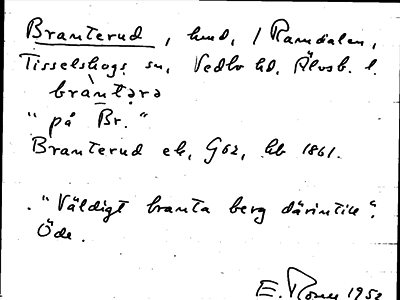 Branterud, hmd, / Ramdalen,
Tisselskogs sn, Vedbo hd, Älvsb. l.
bràntərə
"på Br."
Branterud ek, G62, hb 1861.
."Väldigt branta berg därintill".
Öde.
E. Rosu 1952